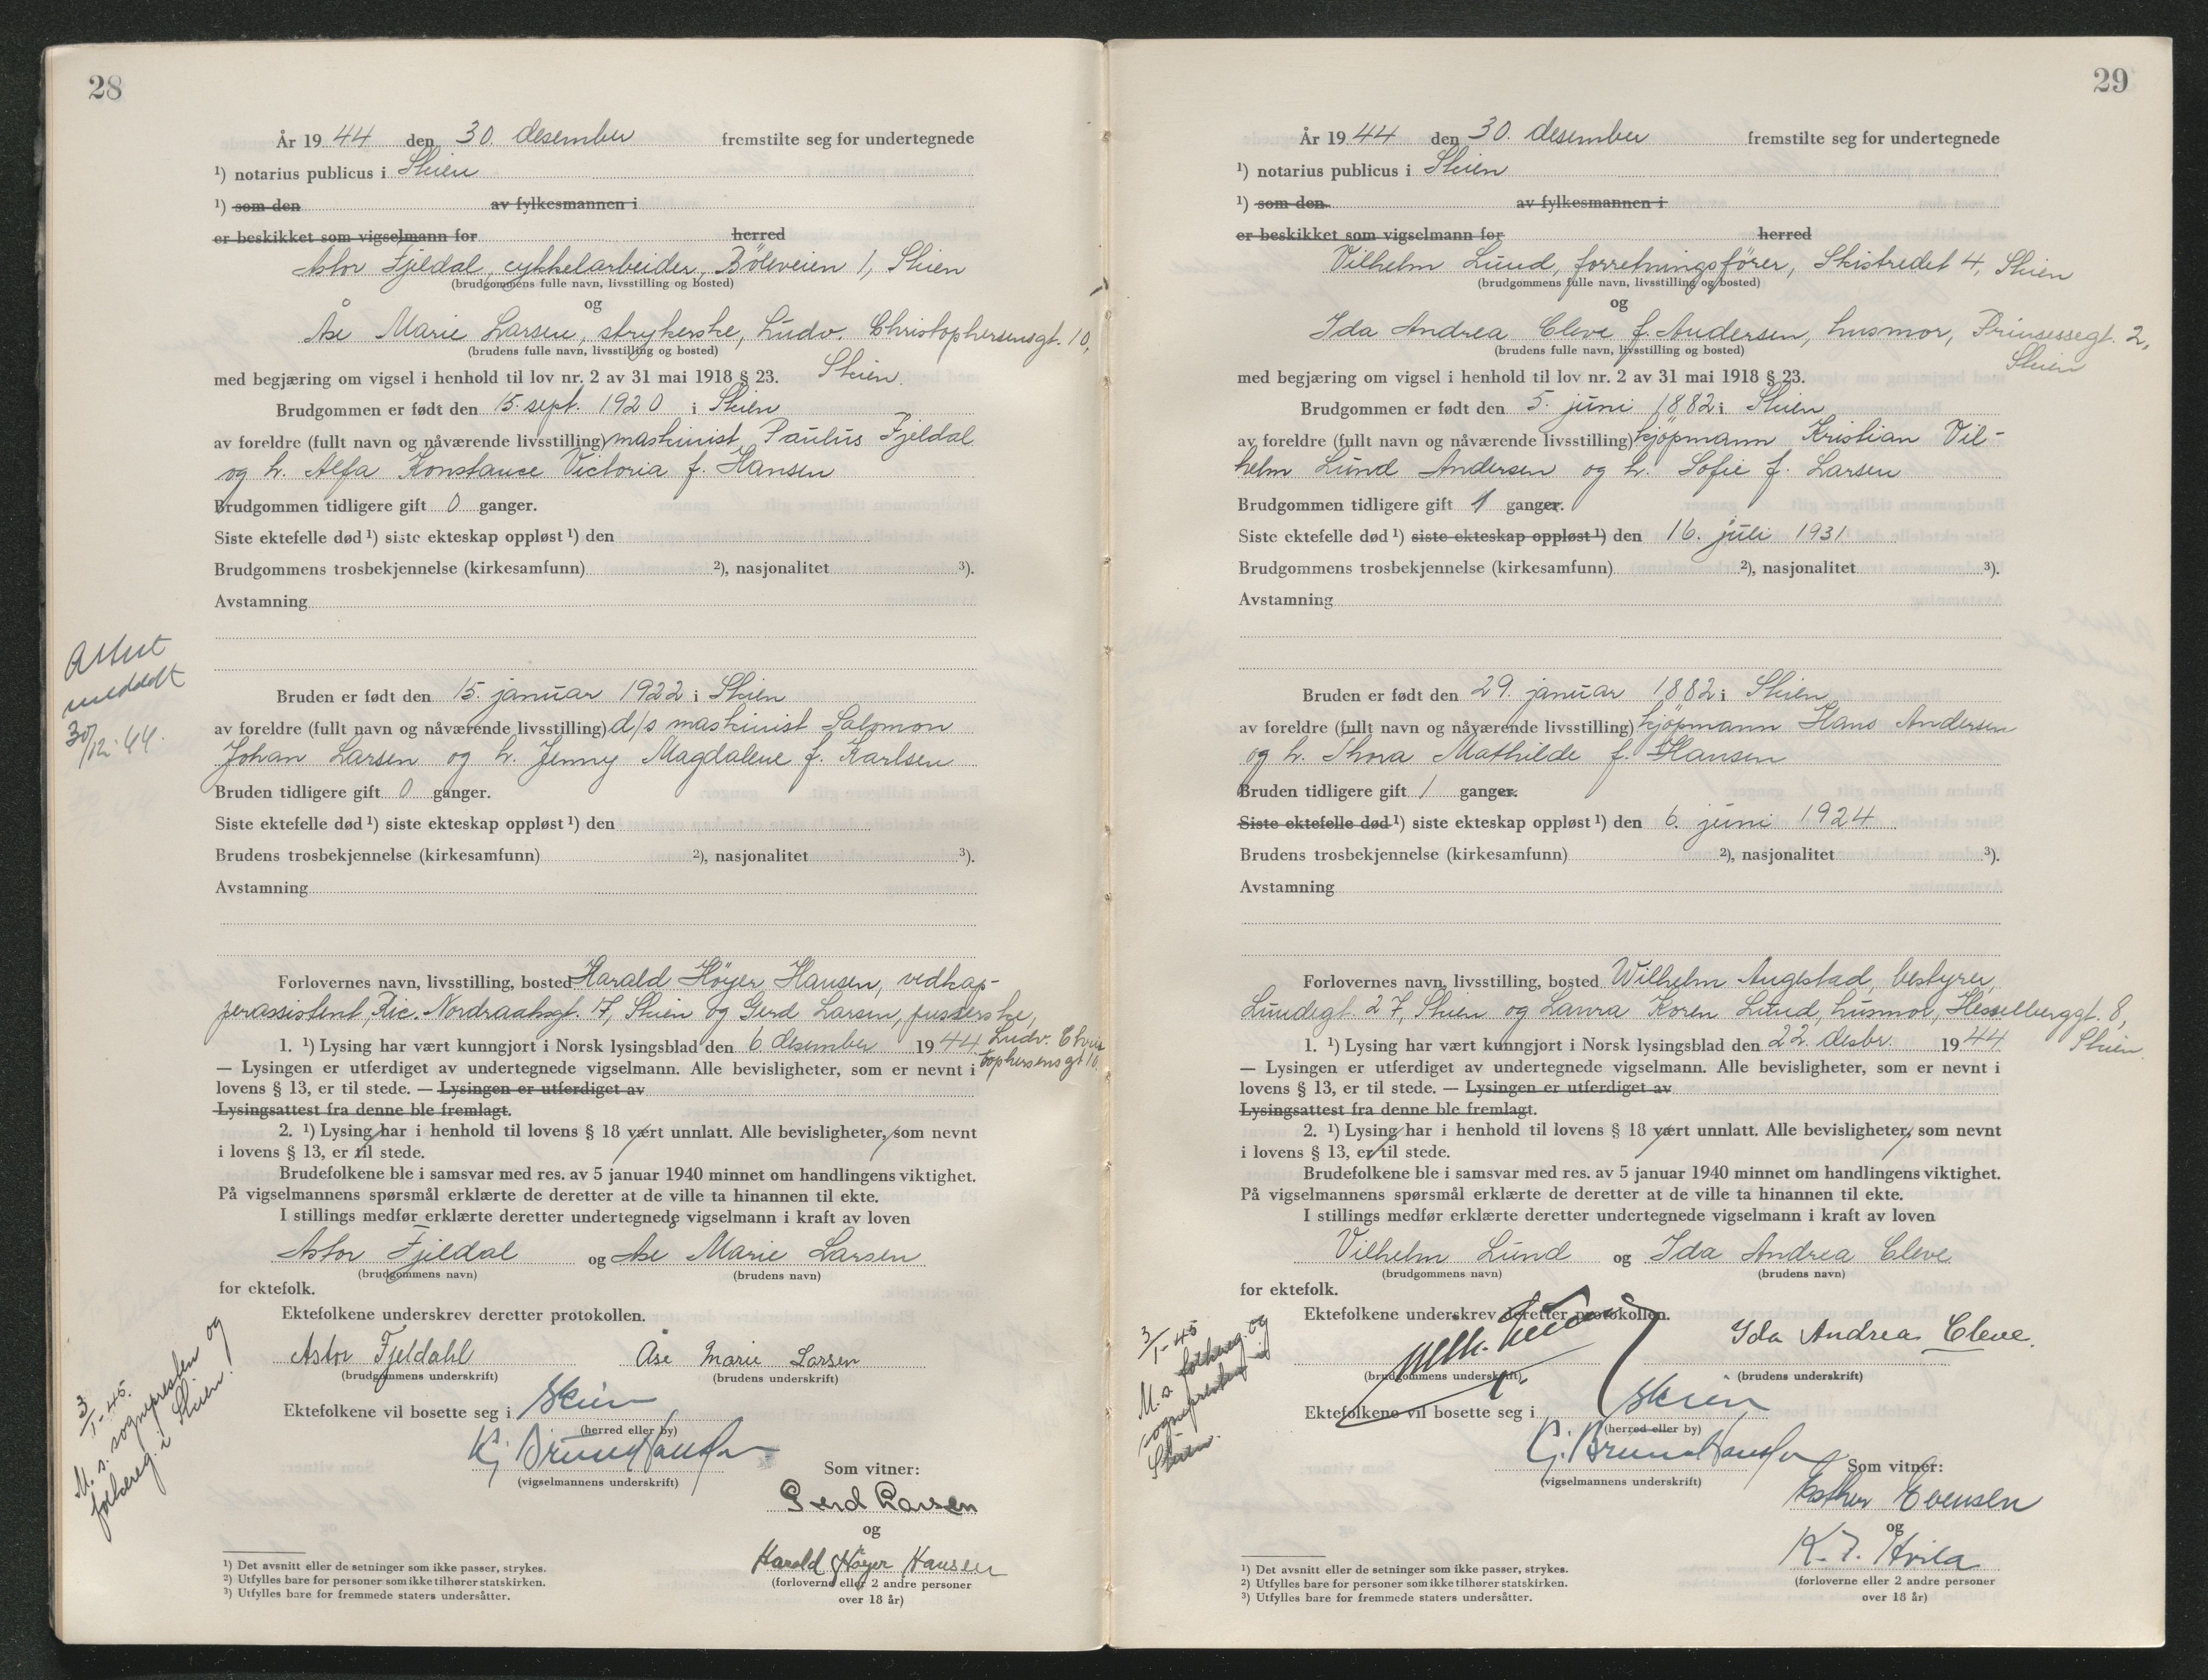 28
År 1944 den 30. desember fremstilte seg for undertegnede
¹) notarius publicus i Skien
¹) som den av fylkesmannen i
er beskikket som vigselmann for herred
Astor Fjeldal, cykkelarbeider, Böleveien 1, Skien
(brudgommens fulle navn, livsstilling og bosted)
og
Åse Marie Larsen, strykerske, Ludv. Christophersensgt. 10,
(brudens fulle navn, livsstilling og bosted)
Skien.
med begjæring om vigsel i henhold til lov nr. 2 av 31 mai 1918 § 23.
Brudgommen er født den 15. sept. 1920 i Skien
av foreldre (fullt navn og nåværende livsstilling) maskinist Paulus Fjeldal
og h. Alfa Konstance Victoria f. Hansen
Brudgommen tidligere gift 0 ganger.
Siste ektefelle død ¹) siste ekteskap oppløst ¹) den
Brudgommens trosbekjennelse (kirkesamfunn) ²), nasjonalitet ³).
Avstamning
Attest
meddelt
30/12-44.
Bruden er født den 15. januar 1922 i Skien
av foreldre (fullt navn og nåværende livsstilling) d/s maskinist Salomon
Johan Larsen og h. Jenny Magdalene f. Karlsen
Bruden tidligere gift 0 ganger.
Siste ektefelle død ¹) siste ekteskap oppløst ¹) den
Brudens trosbekjennelse (kirkesamfunn) ²), nasjonalitet ³).
Avstamning
Forlovernes navn, livsstilling, bosted Harald Höyer Hansen, vedkap-
perassistent, Ric. Nordraaksgt. 17, Skien og Gerd Larsen, pusserske,
Ludv. Chris
tophersensgt 10.
1. ¹) Lysing har vært kunngjort i Norsk lysingsblad den 6 desember 1944
— Lysingen er utferdiget av undertegnede vigselmann. Alle bevisligheter, som er nevnt i
lovens § 13, er til stede. — Lysingen er utferdiget av
Lysingsattest fra denne ble fremlagt.
2. ¹) Lysing har i henhold til lovens § 18 vært unnlatt. Alle bevisligheter, som nevnt
i lovens § 13, er til stede.
Brudefolkene ble i samsvar med res. av 5 januar 1940 minnet om handlingens viktighet.
På vigselmannens spørsmål erklærte de deretter at de ville ta hinannen til ekte.
I stillings medfør erklærte deretter undertegnede vigselmann i kraft av loven
Astor Fjeldal og Åse Marie Larsen
(brudgommens navn) (brudens navn)
for ektefolk.
Ektefolkene underskrev deretter protokollen.
Astor Fjeldahl Åse Marie Larsen
(brudgommens underskrift) (brudens underskrift)
Ektefolkene vil bosette seg i Skien
(herred eller by)
(vigselmannens underskrift)
3/1-45.
M. s. sognepresten og
folkereg. i Skien.
Som vitner:
Gerd Larsen
og
Harald Høyer Hansen
(forloverne eller 2 andre personer
over 18 år)
¹) Det avsnitt eller de setninger som ikke passer, strykes.
²) Utfylles bare for personer som ikke tilhører statskirken.
³) Utfylles bare for fremmede staters undersåtter.
29
År 1944 den 30. desember fremstilte seg for undertegnede
¹) notarius publicus i Skien
¹) som den av fylkesmannen i
er beskikket som vigselmann for herred
Vilhelm Lund, forretningsfører, Skistredet 4, Skien
(brudgommens fulle navn, livsstilling og bosted)
og
Ida Andrea Cleve f. Andersen, husmor, Prinsessegt. 2,
(brudens fulle navn, livsstilling og bosted)
Skien
med begjæring om vigsel i henhold til lov nr. 2 av 31 mai 1918 § 23.
Brudgommen er født den 5. juni 1882 i Skien
av foreldre (fullt navn og nåværende livsstilling) kjöpmann Kristian Vil-
helm Lund Andersen og h. Sofie f. Larsen
Brudgommen tidligere gift 1 ganger.
Siste ektefelle død ¹) siste ekteskap oppløst ¹) den 16. juli 1931
Brudgommens trosbekjennelse (kirkesamfunn) ²), nasjonalitet ³).
Avstamning
Bruden er født den 29. januar 1882 i Skien
av foreldre (fullt navn og nåværende livsstilling) kjöpmann Hans Andersen
og h. Thora Mathilde f. Hansen
Bruden tidligere gift 1 ganger.
Siste ektefelle død ¹) siste ekteskap oppløst ¹) den 6. juni 1924
Brudens trosbekjennelse (kirkesamfunn) ²), nasjonalitet ³).
Avstamning
Forlovernes navn, livsstilling, bosted Wilhelm Augestad, bestyrer,
Lundegt. 27, Skien og Laura Koren Lund, husmor, Hesselberggt. 8,
Skien.
1. ¹) Lysing har vært kunngjort i Norsk lysingsblad den 22. desbr. 1944
— Lysingen er utferdiget av undertegnede vigselmann. Alle bevisligheter, som er nevnt i
lovens § 13, er til stede. — Lysingen er utferdiget av
Lysingsattest fra denne ble fremlagt.
2. ¹) Lysing har i henhold til lovens § 18 vært unnlatt. Alle bevisligheter, som nevnt
i lovens § 13, er til stede.
Brudefolkene ble i samsvar med res. av 5 januar 1940 minnet om handlingens viktighet.
På vigselmannens spørsmål erklærte de deretter at de ville ta hinannen til ekte.
I stillings medfør erklærte deretter undertegnede vigselmann i kraft av loven
Vilhelm Lund og Ida Andrea Cleve
(brudgommens navn) (brudens navn)
for ektefolk.
Ektefolkene underskrev deretter protokollen.
Vilh. Lund Ida Andrea Cleve.
(brudgommens underskrift) (brudens underskrift)
Ektefolkene vil bosette seg i Skien
(herred eller by)
(vigselmannens underskrift)
3/1-45
M. s. folkereg. og
sognepresten i
Skien.
Som vitner:
Esther Evensen
og
K. J. Hvila
(forloverne eller 2 andre personer
over 18 år)
¹) Det avsnitt eller de setninger som ikke passer, strykes.
²) Utfylles bare for personer som ikke tilhører statskirken.
³) Utfylles bare for fremmede staters undersåtter.